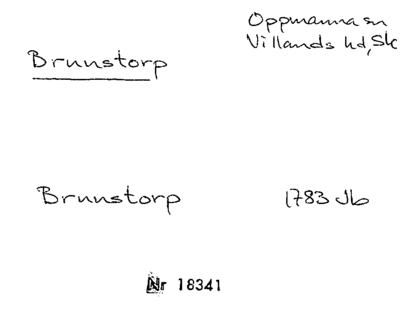 Oppmanna sn
Villands hd, Sk
Brunnstorp
Brunnstorp 1783 Jb
Nr 18341